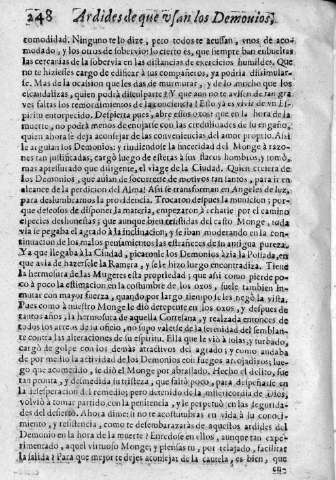 248 Ardides de que vsan los Demonios,
comodidad. Ninguno te lo dize, pero todos te acusan, vnos de aco-
modado, y los otros de sobervio: lo cierto es, que siempre han embueltas
las cercanias de la sobervia en las distancias de exercicios humildes. Que
no te hiziesses cargo de edificar à tus compañeros, ya podria disimular-
se. Mas de la ocasion que les das de murmurar, y de lo mucho que los
escandalizas, quien podrà disculparte? Y que aun no te avisen de tan gra-
ves faltas los remordimientos de la conciencia! Esto ya es vivir de vn Es-
piritu entorpecido. Despierta pues, abre essos ojos: que en la hora de la
muerte, no podrà menos de mojarse con las credulidades de tu engaño,
quien ahora se dexa aconsejar de las conveniencias del amor proprio. Assi
le arguian los Demonios: y rindiendose la sinceridad del Monge à razo-
nes tan justificadas, cargò luego de esteras à sus flacos hombros, y tomò,
mas apresurado que diligente, el viage de la Ciudad. Quien creyera de
los Demonios, que avian de socorrerse de motivos tan santos, para ir en
alcance de la perdicion del Alma! Assi se transforman en Angeles de luz,
para deslumbrarnos la providencia. Trocaron despues la municion; por-
que deseosos de disponer la materia, empezaron à echarle por el camino
especies deshonestas; que aunque bien resistidas del casto Monge, toda
via se pegaba el agrado à la inclinacion, y se iban moderando en la con-
tinuacion de los malos pensamientos las estrañezes de su antigua pureza.
Ya que llegaba à la Ciudad, picaronle los Demonios àzia la Posada, en
que avia de hazersele la Ramera, y se le hizo luego encontradiza. Tiene
la hermosura de las Mugeres esta propriedad; que assi como pierde po-
co à poco la estimacion en la costumbre de los ojos, suele tambien in-
mutar con mayor fuerza, quando por largo tiempo se les negò la vista.
Pues como à nuestro Monge le diò derepente en los ojos, y despues de
tantos años, la hermosura de aquella Cortesana, y realzada entonces de
todos los arreos de su oficio, no supo valerse de la serenidad del semblan-
te contra las alteraciones de su espiritu. Ella que le viò à solas, y turbado,
cargò de golpe con los demàs atractivos del agrado; y como andaba
de por medio la actividad de los Demonios con fuegos arrojadizos, lue-
go que acometido, se diò el Monge por abrassado. Hecho el delito, fue
tan pronta, y desmedida su tristeza, que faltò poco, para despeñarse en
la desesperacion del remedio; pero detenido de la misericordia de Dios,
volviò à tomar partido con la penitencia, y se perpetuò en las segurida-
des del desierto. Ahora dime: si no te acostumbras en vida à su conoci-
miento, y resistencia, como te desembarazaràs de aquellos ardides del
Demonio en la hora de la muerte? Enredose en ellos, aunque tan expe-
rimentado, aquel virtuoso Monge; y piensas tu, por relajado, facilitar
la salida? Para que mejor te dexes aconsejar de la cautela, es bien, que